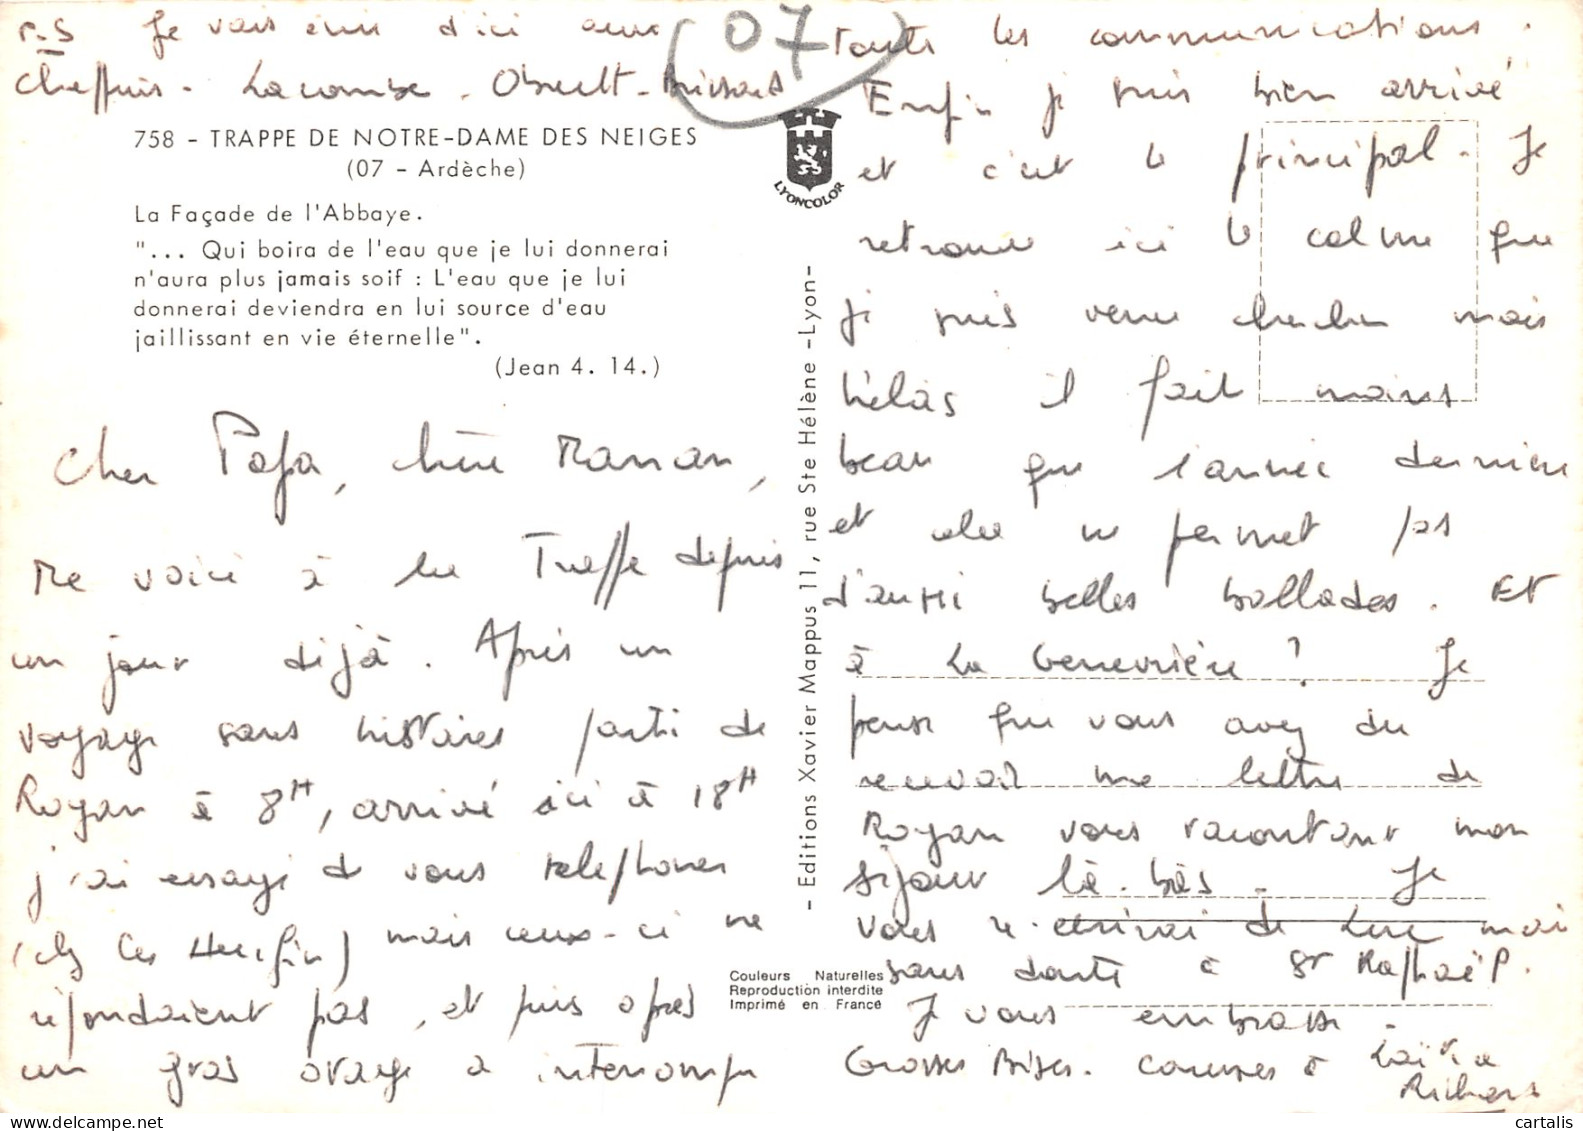 P.S Je vais écrire d'ici aux
Cheffuis - Lacombe - Obrelt - Brissard
07
758 - TRAPPE DE NOTRE-DAME DES NEIGES
(07 - Ardèche)
La Façade de l'Abbaye.
"... Qui boira de l'eau que je lui donnerai
n'aura plus jamais soif : L'eau que je lui
donnerai deviendra en lui source d'eau
jaillissant en vie éternelle".
(Jean 4. 14.)
LYONCOLOR
Cher Papa, chère Maman,
Me voici à la Trappe depuis
un jour déjà. Après un
voyage sans histoires parti de
Royan à 8H, arrivé ici à 18H
j'ai essayé de vous telephoner
(chez les) mais ceux-ci ne
répondaient pas, et puis après
un gros orage a interrompu
- Editions Xavier Mappus 11, rue Ste Hélène -Lyon-
Couleurs Naturelles
Reproduction interdite
Imprimé en France
toutes les communications.
Enfin je suis bien arrivé
et c'est le principal. Je
retrouve ici le calme que
je suis venu chercher mais
hélas il fait moins
beau que l'année dernière
et cela ne permet pas
d'aussi belles ballades. Et
à La Genevrière ? Je
pense que vous avez du
recevoir une lettre de
Royan vous racontant mon
séjour là-bas. Je
vous ré-écrirai de Luc mais
sans doute à St Raphaël.
Je vous embrasse.
Grosses Bises. Caresses à
Richard
cartalis